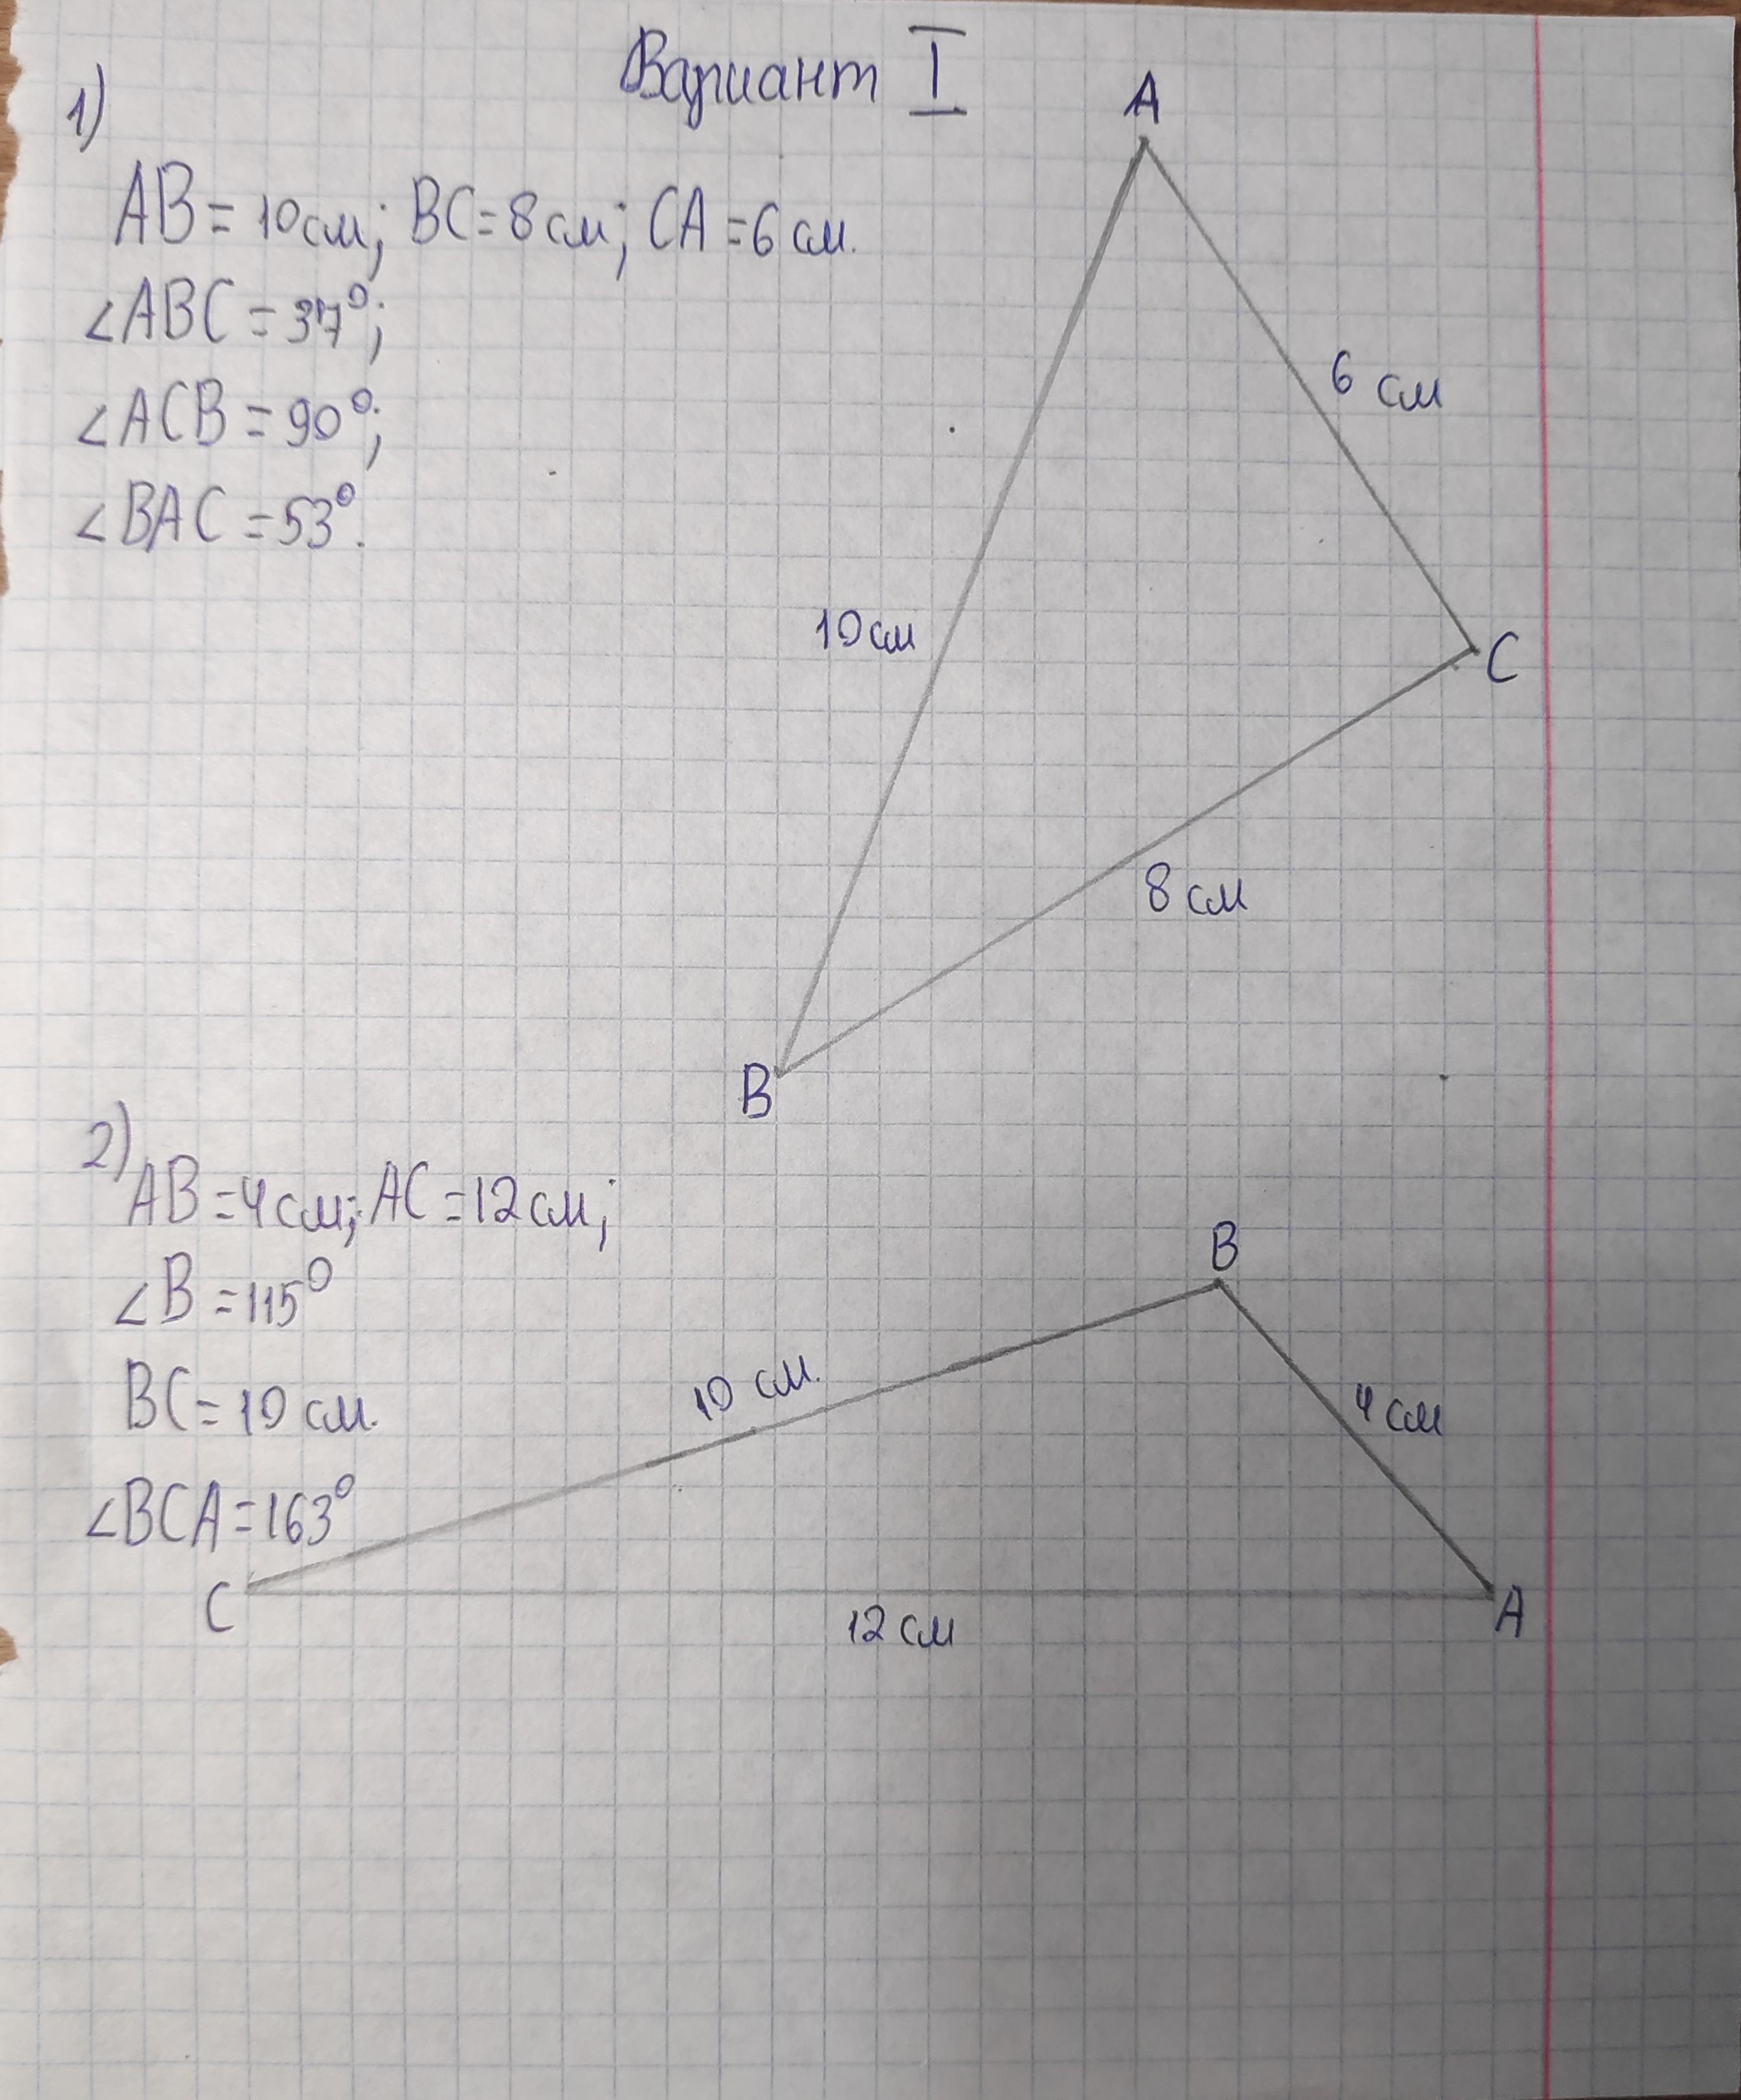 Вариант I
1)
AB = 10 см; BC = 8 см; CA = 6 см.
∠ABC = 37°;
∠ACB = 90°;
∠BAC = 53°.
A
6 см
10 см
C
8 см
B
2)
AB = 4 см; AC = 12 см;
∠B = 115°
BC = 10 см.
∠BCA = 163°
B
10 см.
4 см
C
12 см
A